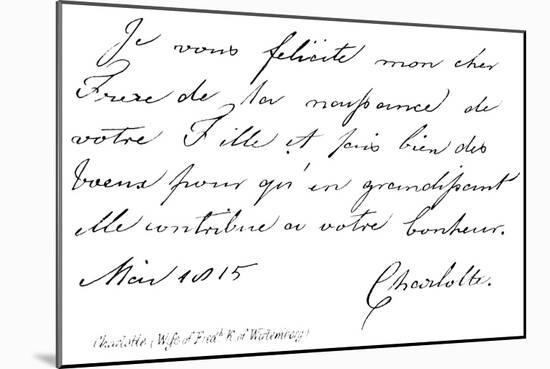 Je vous felicite mon cher
Frere de la naissance de
votre Fille et fais bien des
voeux pour qu'en grandissant
elle contribue a votre bonheur.
Mai 1815 Charlotte.
Charlotte (Wife of Fredk K of Wurtemberg)